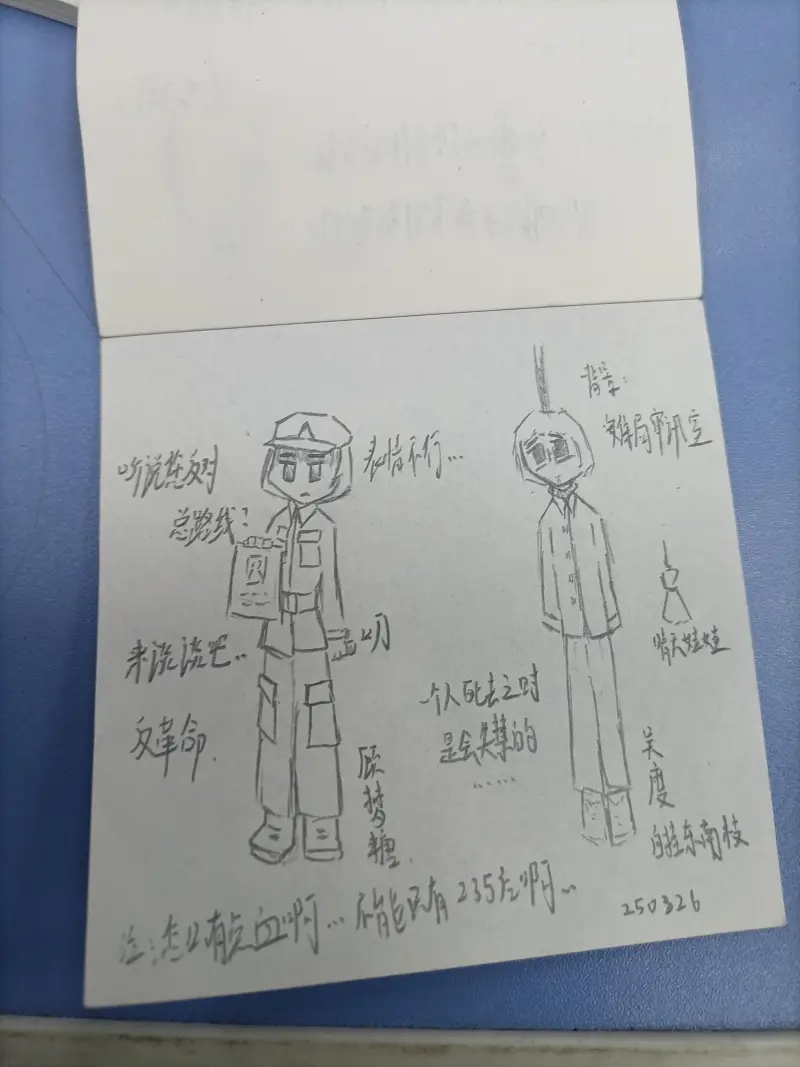 听说您反对
总路线？
来谈谈吧..
反革命.
表情不行...
顾梦糖.
背景：
审讯室
晴天娃娃
一个人死去之时
是会失禁的
......
吴度
自挂东南枝
注：怎么有点血啊... 不能只有235左啊..
250326